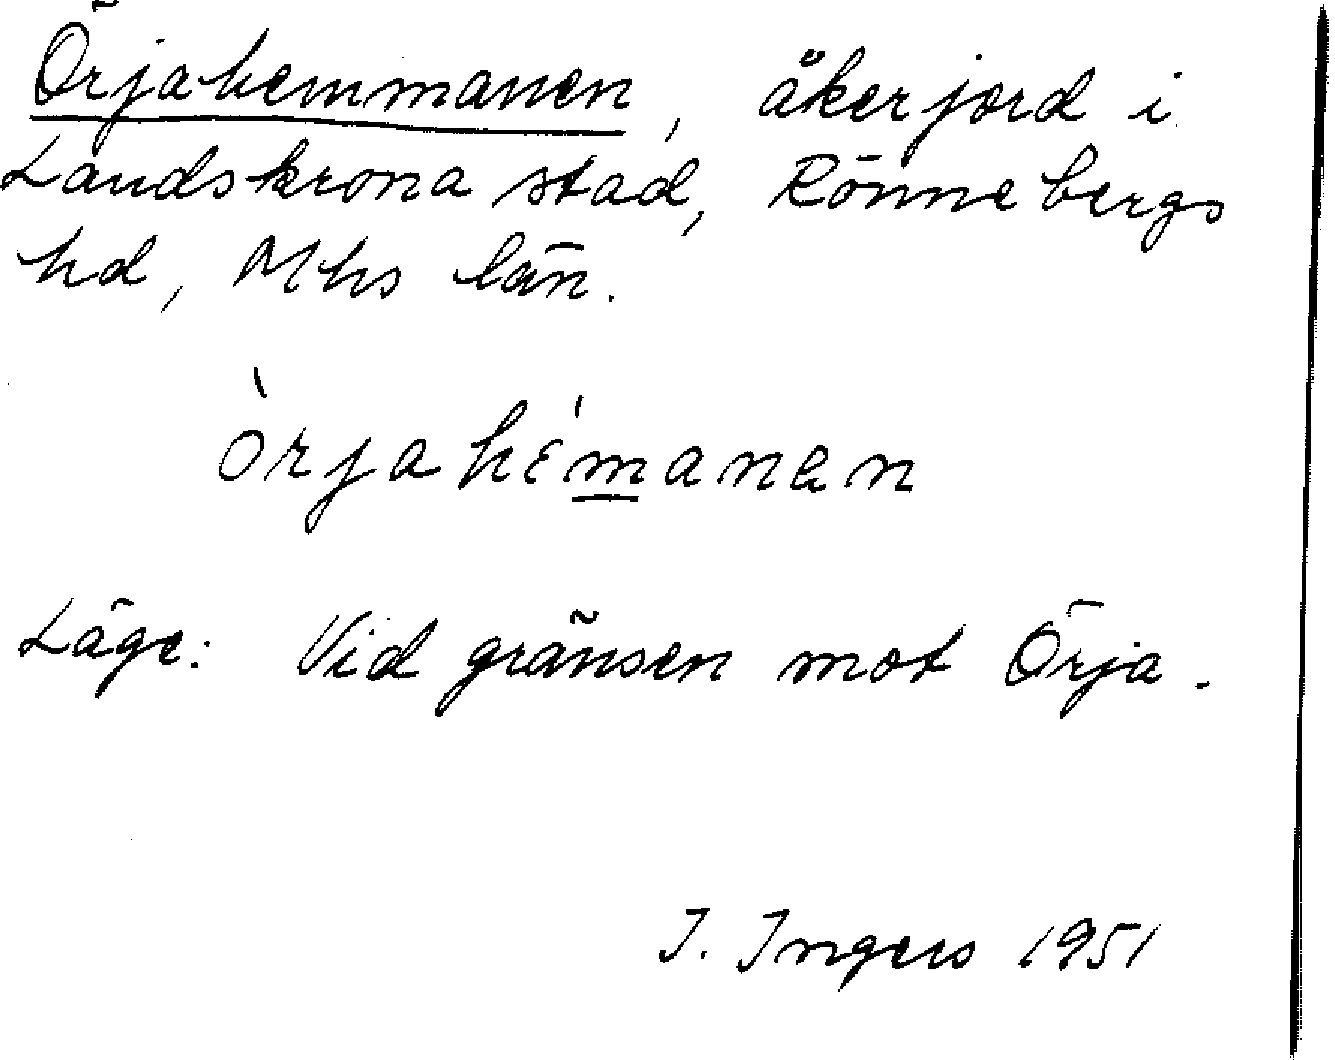 Örjahemmanen, åkerjord i
Landskrona stad, Rönnebergs
hd, Mhs län.
örjahemanen
Läge: Vid gränsen mot Örja.
I. Ingers 1951